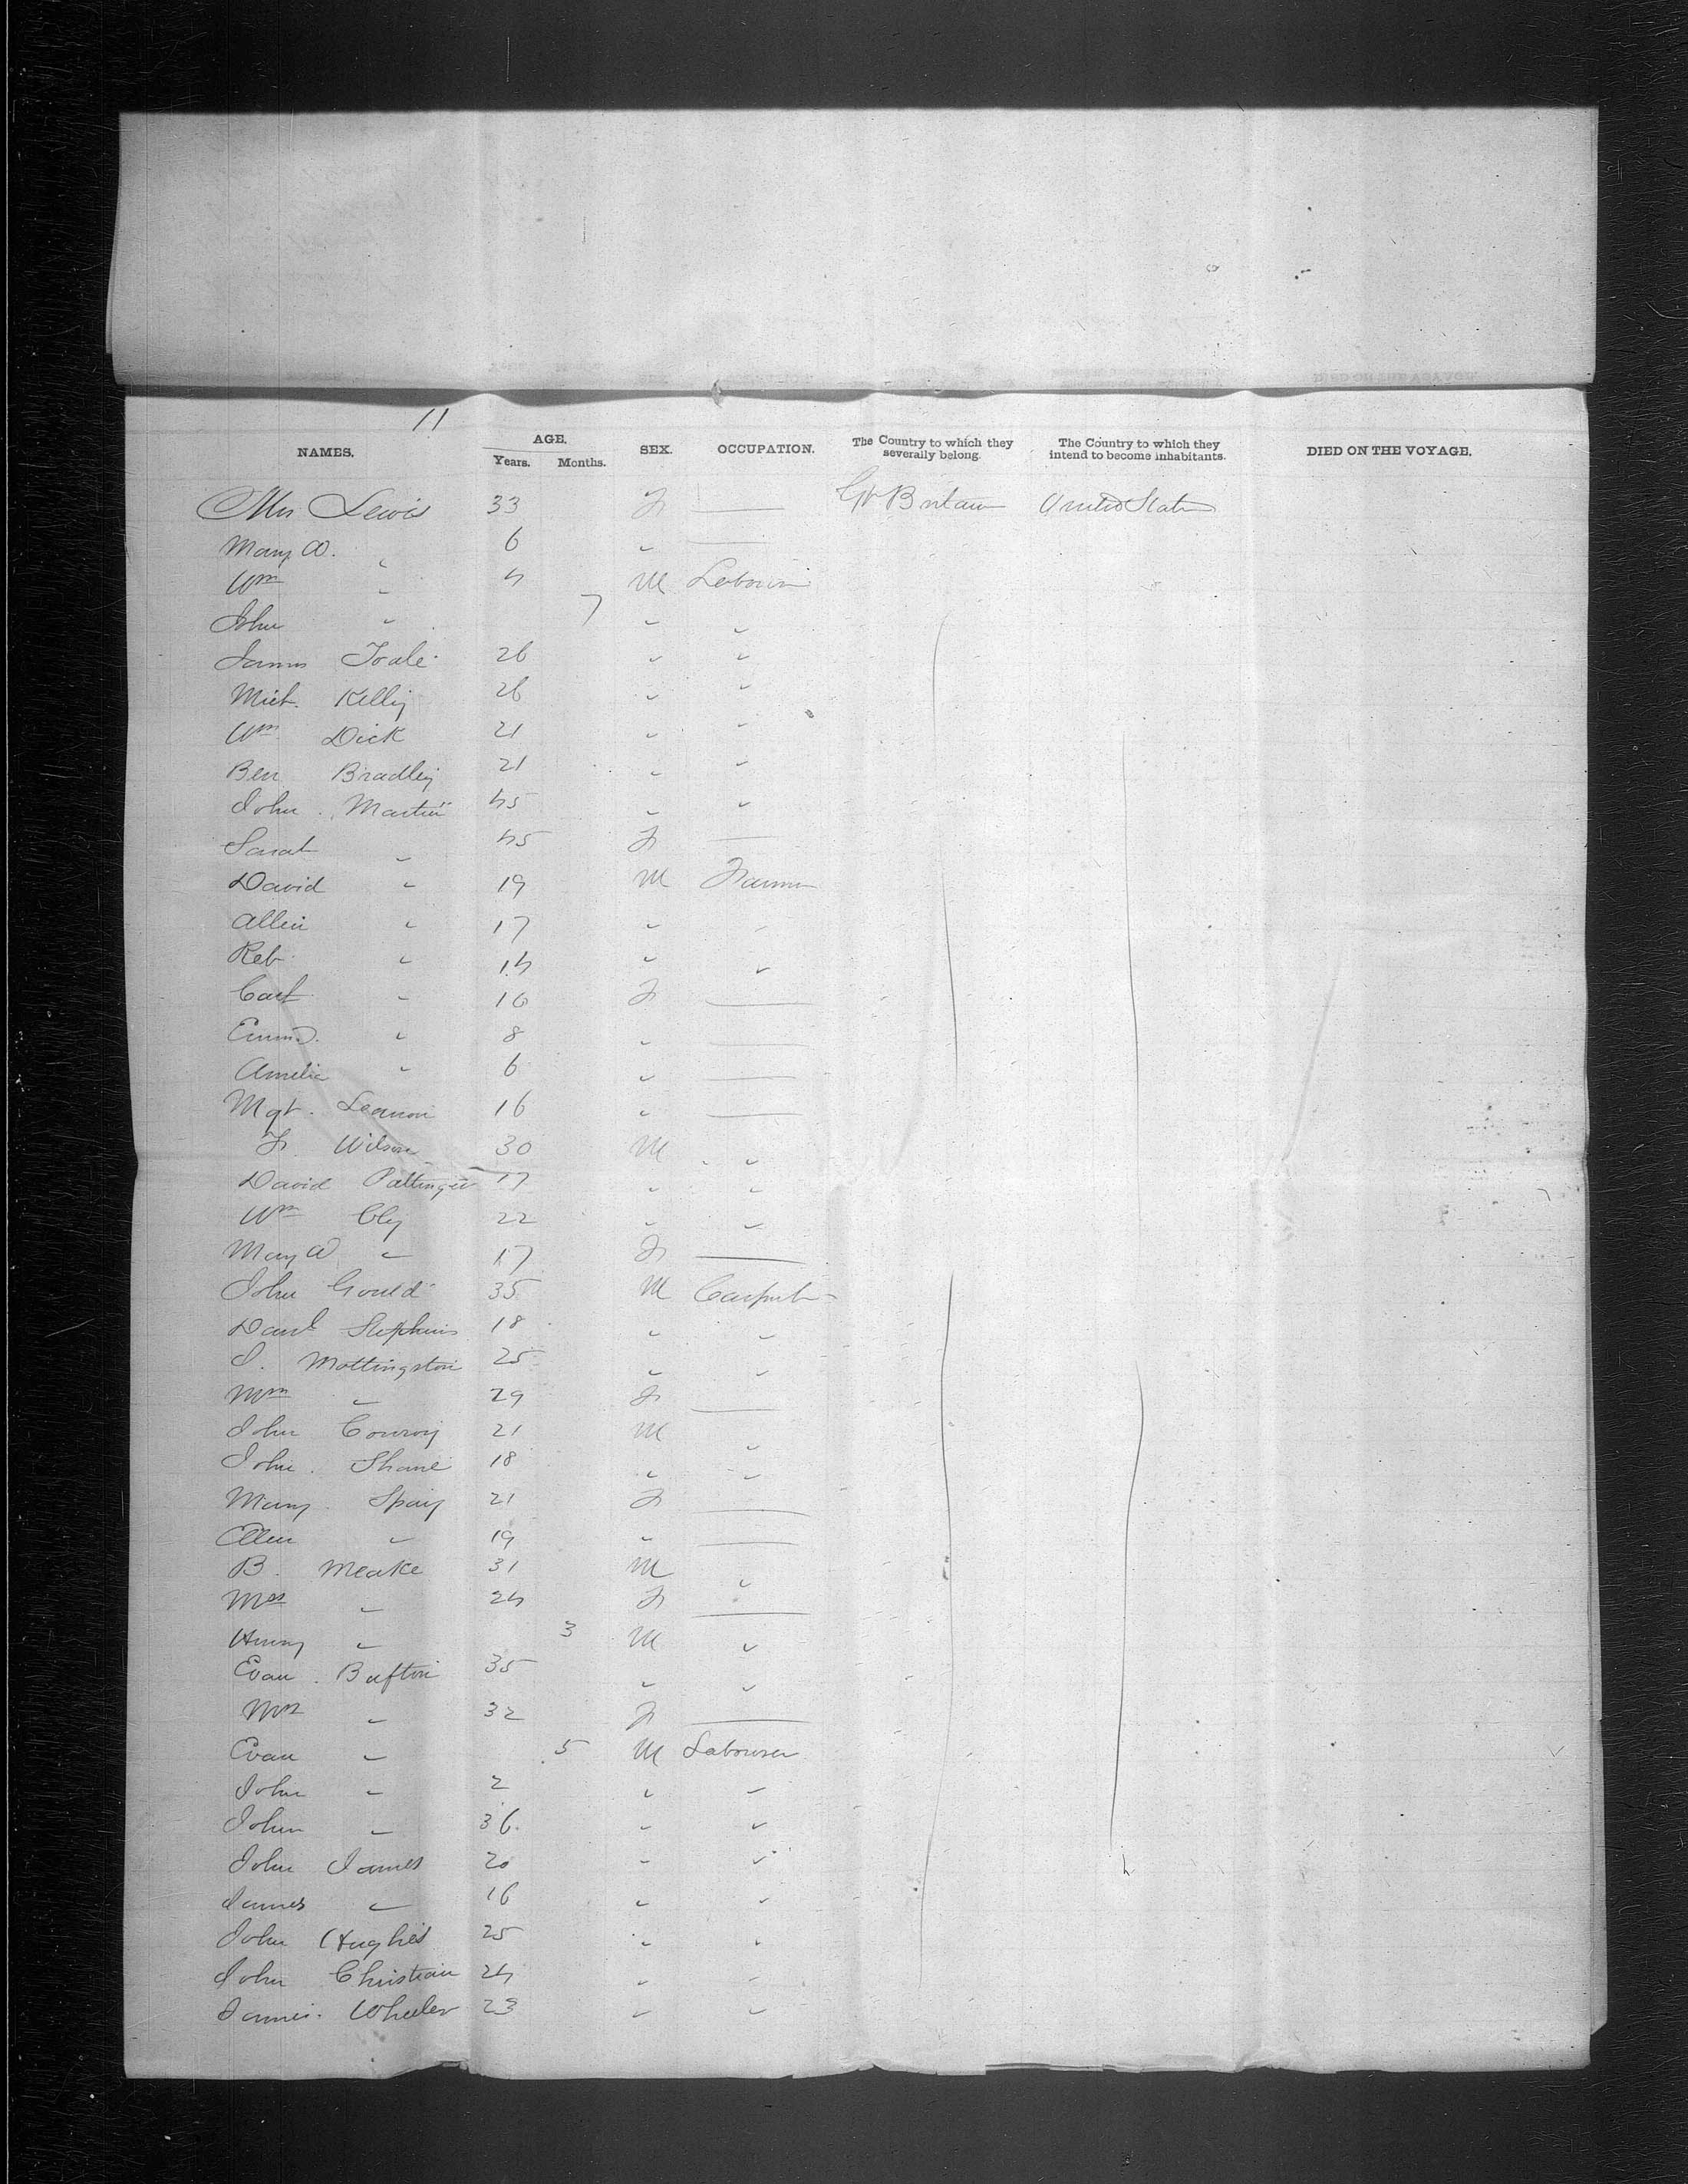 11
NAMES. AGE. Years. Months. SEX. OCCUPATION. The Country to which they severally belong. The Country to which they intend to become inhabitants. DIED ON THE VOYAGE.
Mrs Lewis 33 F — Gt Britain United States
Mary A. " 6 " —
Wm " 4 M Labourer
John " 7 " "
James 26 " "
Mich. Kelly 26 " "
Wm Dick 21 " "
Ben Bradley 21 " "
John Martin 45 " "
Sarah " 45 F —
David " 19 M Farmer
Allen " 17 " "
Reb " 14 " "
Cath " 10 F —
Emma " 8 " —
Amelia " 6 " —
Mgt. 16 " —
F. Wilson 30 M "
David 17 " "
Wm 22 " "
Mary A " 17 F —
John Gould 35 M Carpenter
Danl Stephens 18 " "
J. Mottingston 25 " "
Mrs " 29 F —
John Conroy 21 M "
John Shane 18 " "
Mary 21 F —
Ellen " 19 " —
B. Meake 31 M "
Mrs " 24 F —
Henry " 3 M "
Evan Bufton 35 " "
Mrs " 32 F —
Evan " 5 M Labourer
John " 2 " "
John " 36 " "
John James 20 " "
James " 16 " "
John Hughes 25 " "
John Christian 24 " "
James Wheeler 23 " "